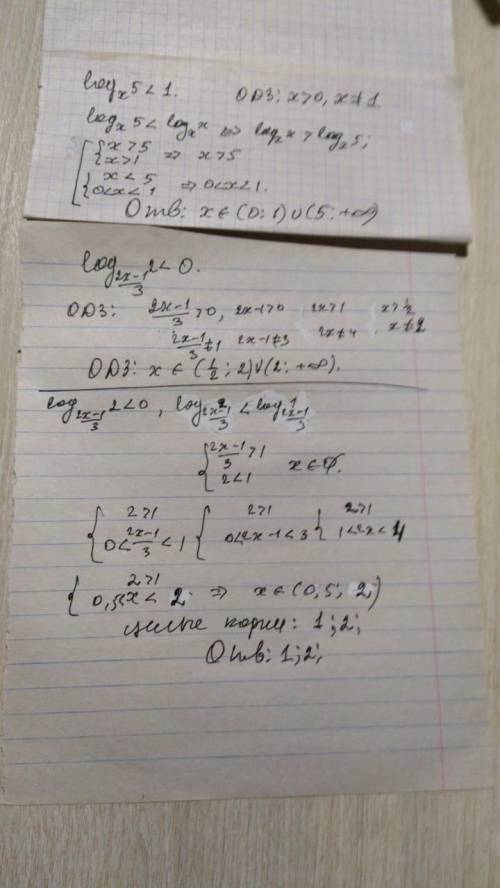 log_x 5 < 1.   ОДЗ: x>0, x≠1.
log_x 5 < log_x x ⇔ log_x x > log_x 5;
{x > 5
{x>1 ⇒ x>5
{x < 5
{0<x<1 ⇒ 0<x<1.
Отв: x ∈ (0; 1) ∪ (5; +∞)
log_{(2x-1)/3} 2 < 0.
ОДЗ: (2x-1)/3 > 0, 2x-1>0 2x>1 x>1/2
(2x-1)/3 ≠ 1 2x-1≠3 2x≠4 x≠2
ОДЗ: x ∈ (1/2; 2)∪(2; +∞).
log_{(2x-1)/3} 2 < 0, log_{(2x-1)/3} 2 < log_{(2x-1)/3} 1
{(2x-1)/3 > 1
{2<1 x∈∅.
{2>1 {2>1 {2>1
{0<(2x-1)/3<1 {0<2x-1<3 {1<2x<4
{2>1
{0,5<x< 2 ⇒ x∈(0,5; 2)
целые корни: 1; 2;
Отв: 1; 2;